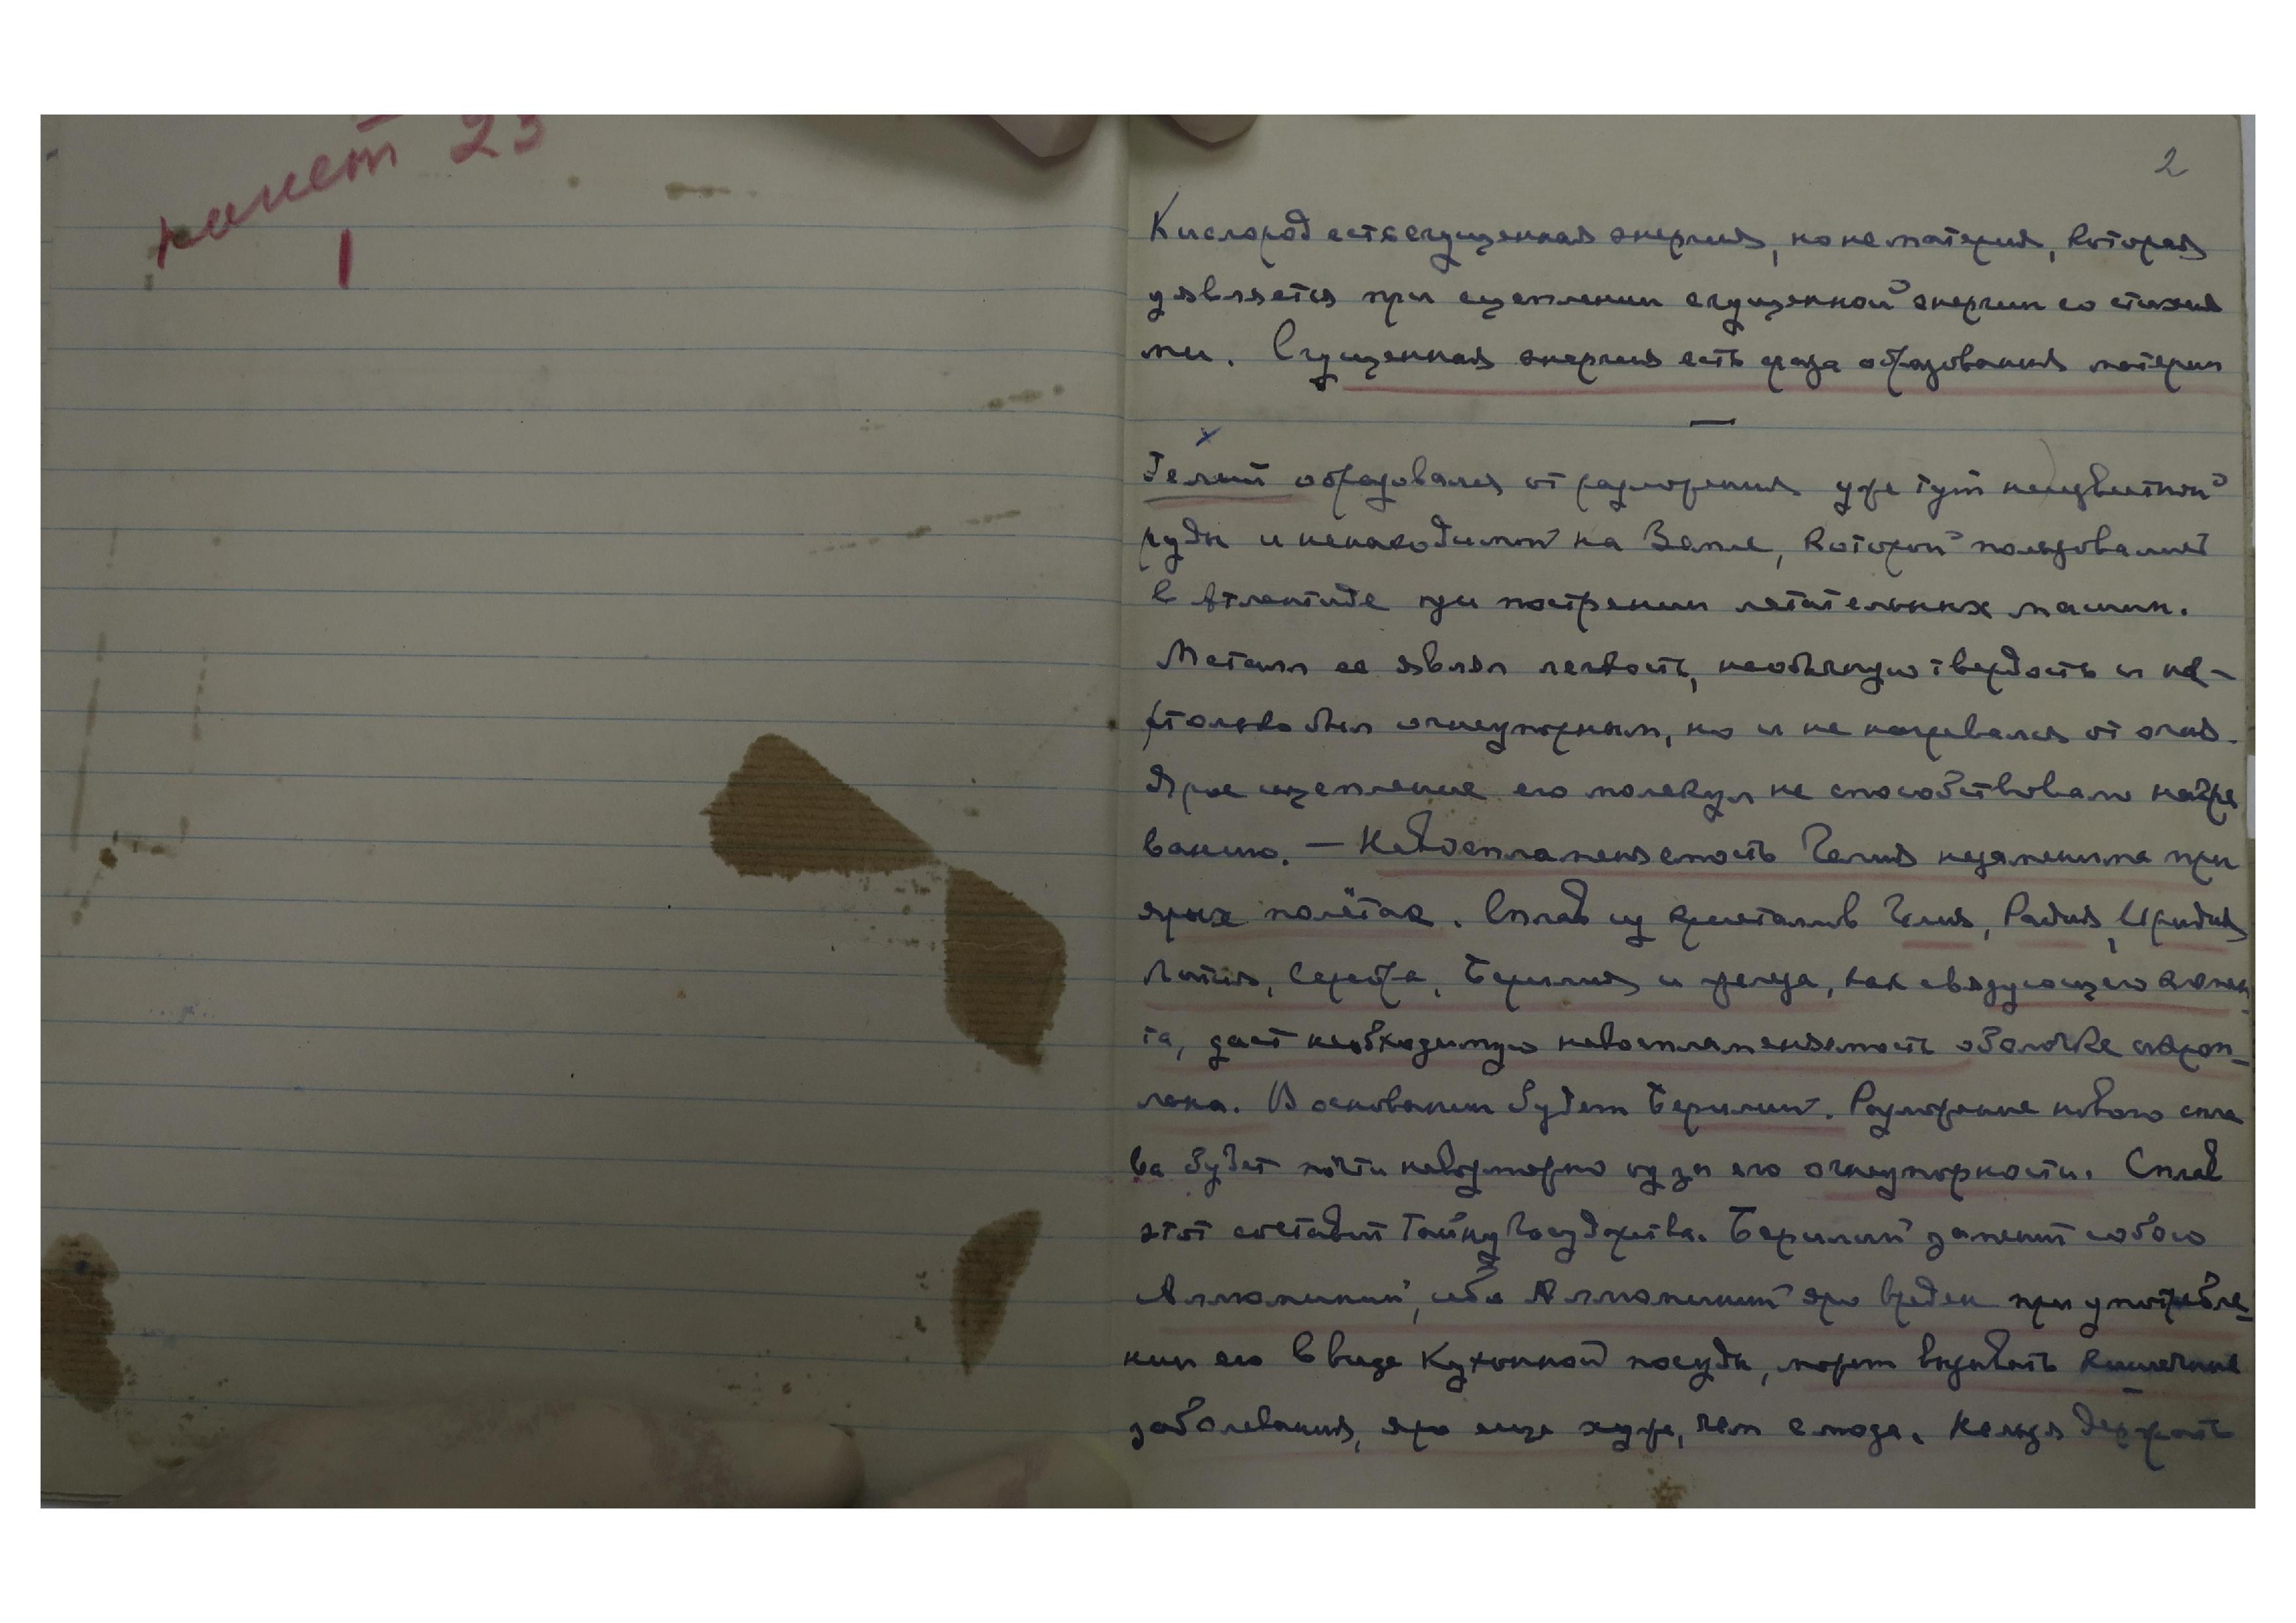 23
1
2
Кислород есть сгущенная энергия, но не материя, которая
является при сцеплении сгущенной энергии со стихия
ми. Сгущенная энергия есть фаза образования материи
—
Гелий образовался от разложения уже тут неизвестной
руды и ненаходимой на Земле, которой пользовались
в Атлантиде при построении летательных машин.
Металл ее являл легкость, необычную твердость и не-
только был огнеупорным, но и не нагревался от огня.
Ярое сцепление его молекул не способствовало нагре
ванию. — Невоспламеняемость Гелия незаменима при
ярых полётах. Сплав из кристаллов Гелия, Радия, Иридия
Лития, Серебра, Берилия и железа, как связующего
та, дает необходимую невоспламеняемость оболочке аэроп-
лана. В основании будет Берилий. Разложение нового спла
ва будет почти невозможно из за его огнеупорности. Сплав
этот составит Тайну Государства. Берилий заменит собою
Аллюминий, ибо Аллюминий яро вреден при употребле-
нии его в виде Кухонной посуды, может вызывать кишечные
заболевания, яро еще хуже, чем Нельзя держать